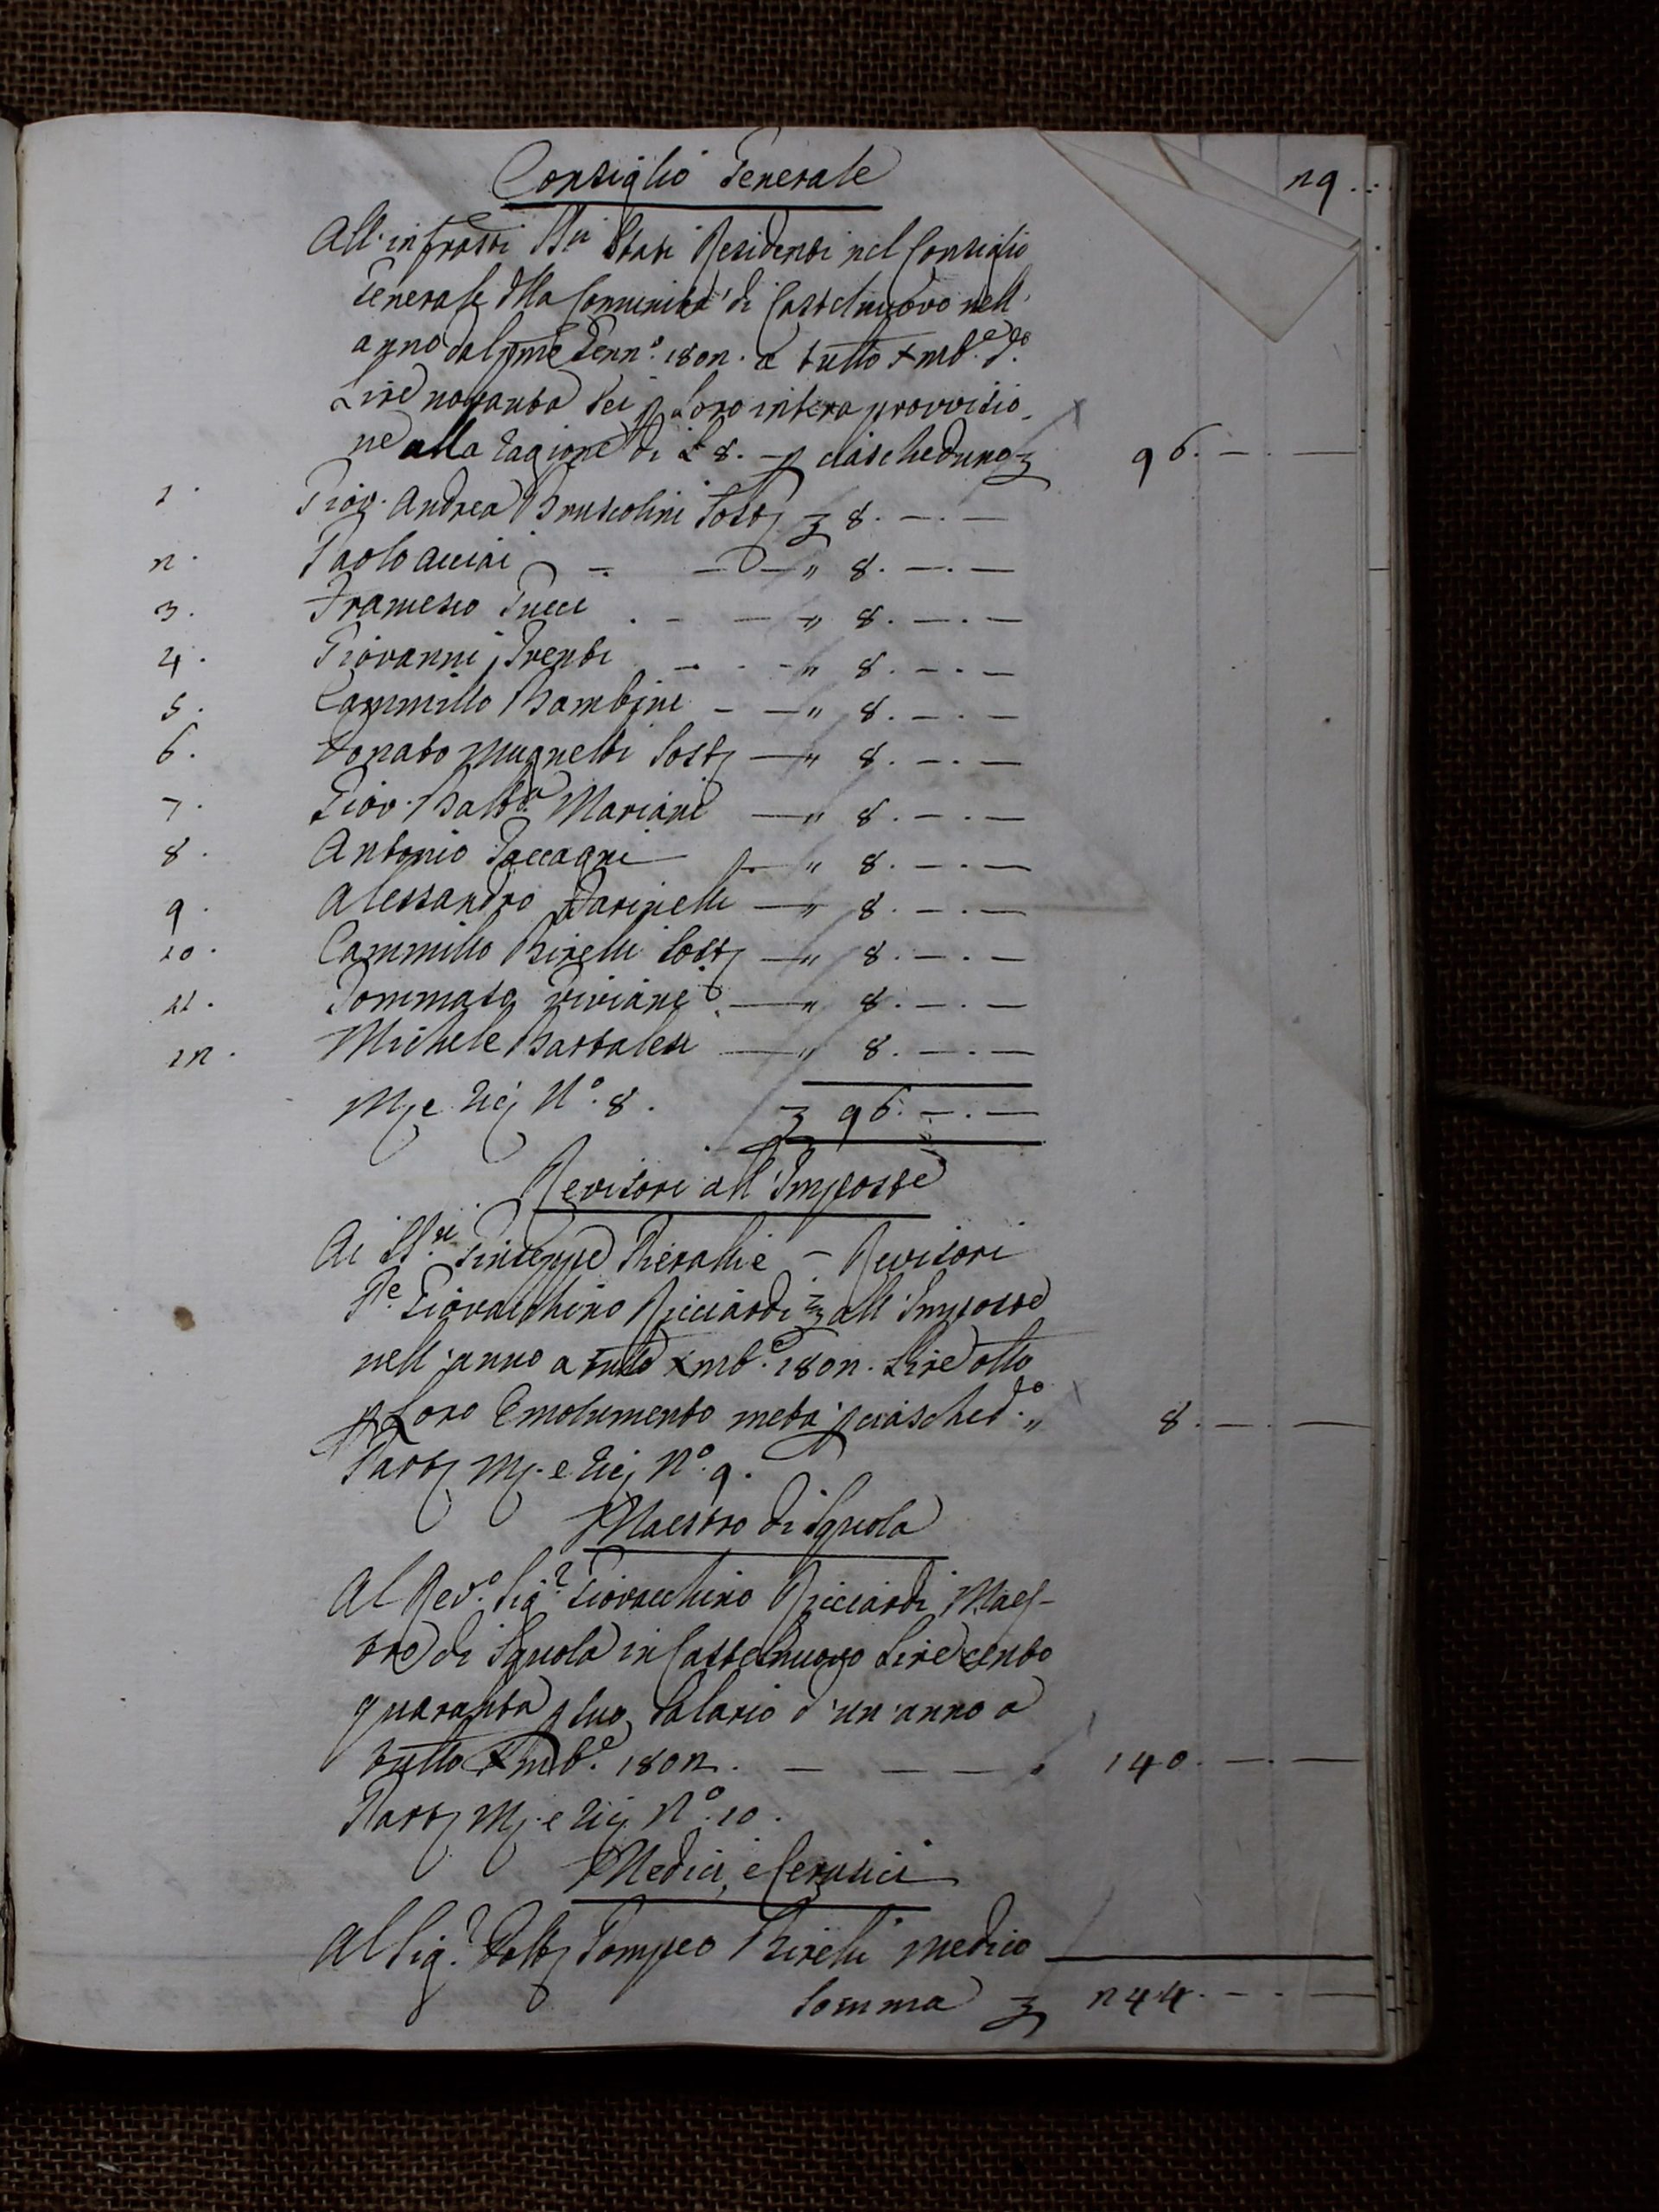 Consiglio Generale
29
All' infratti SSri Stati Residenti nel Consiglio
Generale della Comunità di Castelnuovo nell'
anno dal pme Genn.o 1802. a tutto Xmb.e d.o
Lire novanta sei p Loro intera provvisio-
ne alla ragione di £ 8. - p ciascheduno £ 96. — . —
1. Giov. Andrea Bruscolini Sost £ 8. — . —
2. Paolo Acciai — " 8. — . —
3. Francesco Pucci — " 8. — . —
4. Giovanni Trenti — " 8. — . —
5. Cammillo Bambini — " 8. — . —
6. Donato Mugnetti Sost — " 8. — . —
7. Giov. Batta Mariani — " 8. — . —
8. Antonio Paccagni — " 8. — . —
9. Alessandro Farinelli — " 8. — . —
10. Cammillo Birelli Sost — " 8. — . —
11. Tommaso Viviani — " 8. — . —
12. Michele Bartalesi — " 8. — . —
M e Ric N.o 8. £ 96. — . —
Revisori all' Imposte
Ai SS.ri Giuseppe Pieralli e - Revisori
P.e Giovacchino Ricciardi all' Imposte
nell' anno a tutto Xmb.e 1802. Lire otto
p Loro Emolumento metà p ciasched.do " 8. — . —
Part M. e Ric N.o 9.
Maestro di Squola
Al Rev.o Sig.r Giovacchino Ricciardi Maes-
tro di Squola in Castelnuovo Lire cento
quaranta p suo Salario d' un' anno a
tutto Xmb.e 1802. — — — 140. — . —
Part M. e Ric N.o 10.
Medici, e Cerusici
Al Sig.r Dott Pompeo Birelli Medico
Somma £ 244. — . —